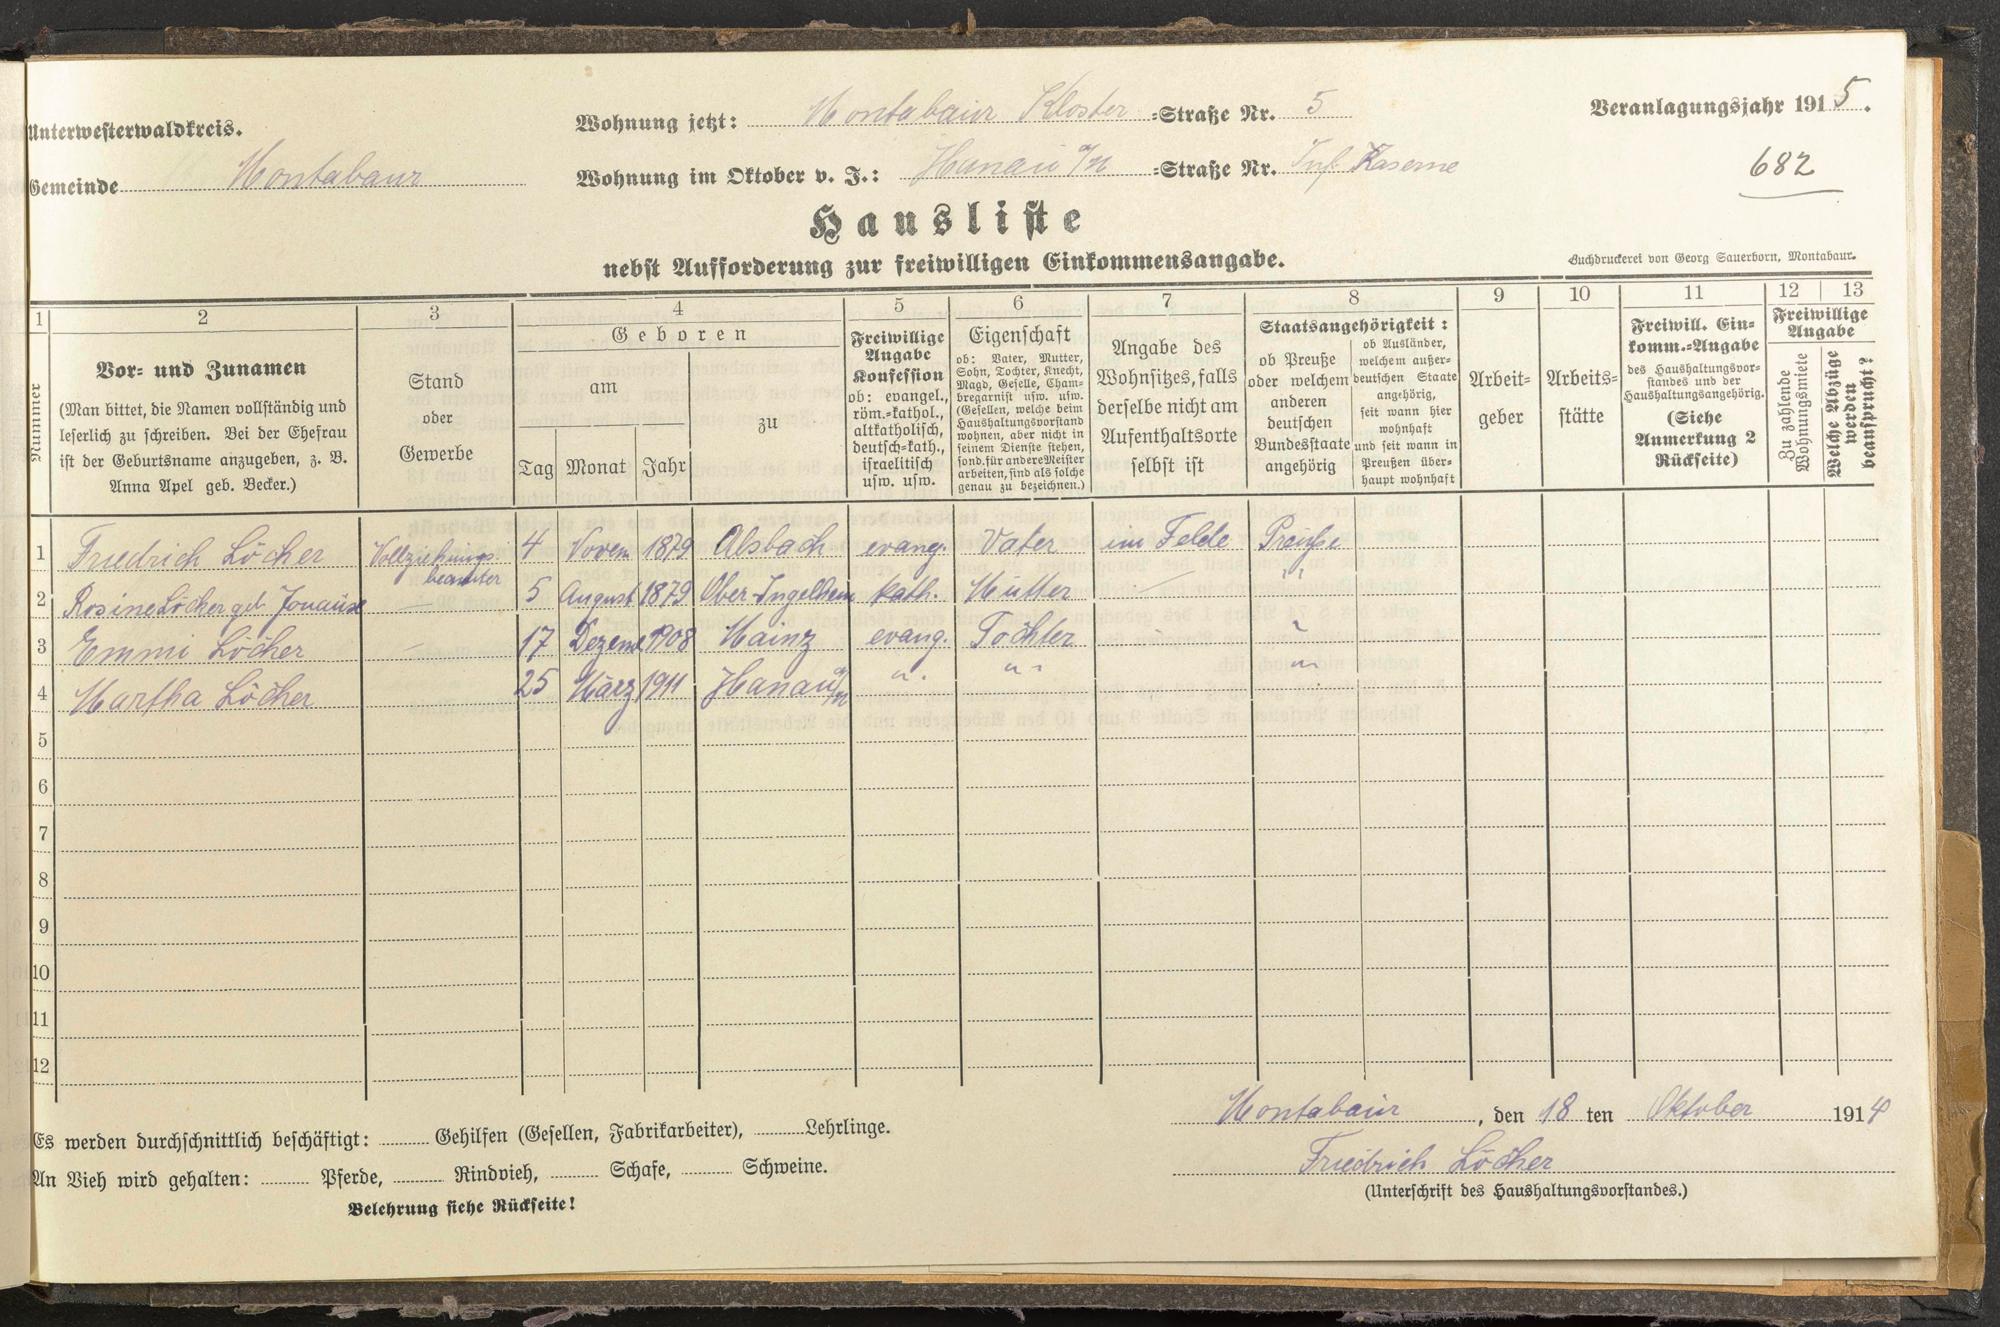 Unterwesterwaldkreis.
Gemeinde Montabaur
Wohnung jetzt: Montabaur Kloster =Straße Nr. 5
Wohnung im Oktober v. J.: Hanau a/M =Straße Nr. Inf. Kaserne
Veranlagungsjahr 1915.
682
Hausliste
nebst Aufforderung zur freiwilligen Einkommensangabe.
Buchdruckerei von Georg Sauerborn, Montabaur.
1
Nummer
2
Vor- und Zunamen
(Man bittet, die Namen vollständig und
leserlich zu schreiben. Bei der Ehefrau
ist der Geburtsname anzugeben, z. B.
Anna Apel geb. Becker.)
3
Stand
oder
Gewerbe
4
Geboren
am
Tag Monat Jahr
zu
5
Freiwillige
Angabe
Konfession
ob: evangel.,
röm.=kathol.,
altkatholisch,
deutsch=kath.,
israelitisch
usw. usw.
6
Eigenschaft
ob: Vater, Mutter,
Sohn, Tochter, Knecht,
Magd, Geselle, Cham-
bregarnist usw. usw.
(Gesellen, welche beim
Haushaltungsvorstand
wohnen, aber nicht in
seinem Dienste stehen,
sond. für andere Meister
arbeiten, sind als solche
genau zu bezeichnen.)
7
Angabe des
Wohnsitzes, falls
derselbe nicht am
Aufenthaltsorte
selbst ist
8
Staatsangehörigkeit:
ob Preuße
oder welchem
anderen
deutschen
Bundesstaate
angehörig
ob Ausländer,
welchem außer-
deutschen Staate
angehörig,
seit wann hier
wohnhaft
und seit wann in
Preußen über-
haupt wohnhaft
9
Arbeit-
geber
10
Arbeits-
stätte
11
Freiwill. Ein-
komm.=Angabe
des Haushaltungsvor-
standes und der
Haushaltungsangehörig.
(Siehe
Anmerkung 2
Rückseite)
12 13
Freiwillige
Angabe
Zu zahlende
Wohnungsmiete
Welche Abzüge
werden
beansprucht?
1 Friedrich Löcher Vollziehungs- 4 Novem 1879 Alsbach evang. Vater im Felde Preuße
beamter
2 Rosine Löcher geb. — 5 August 1879 Ober-Ingelheim kath. Mutter — " "
3 Emmi Löcher — 17 Dezem 1908 Mainz evang. Tochter "
4 Martha Löcher 25 März 1911 Hanau a/M " " "
5
6
7
8
9
10
11
12
Es werden durchschnittlich beschäftigt: Gehilfen (Gesellen, Fabrikarbeiter), Lehrlinge.
An Vieh wird gehalten: Pferde, Rindvieh, Schafe, Schweine.
Belehrung siehe Rückseite!
Montabaur, den 18 ten Oktober 1914
Friedrich Löcher
(Unterschrift des Haushaltungsvorstandes.)